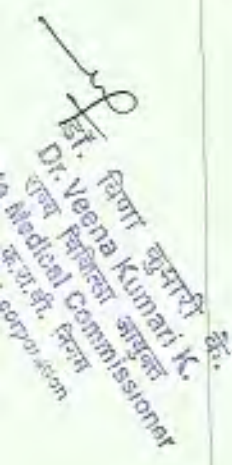 डॉ. विणा कुमारी के.
Dr. Veena Kumari K.
राज्य चिकित्सा आयुक्त
Medical Commissioner
क.रा.बी. निगम